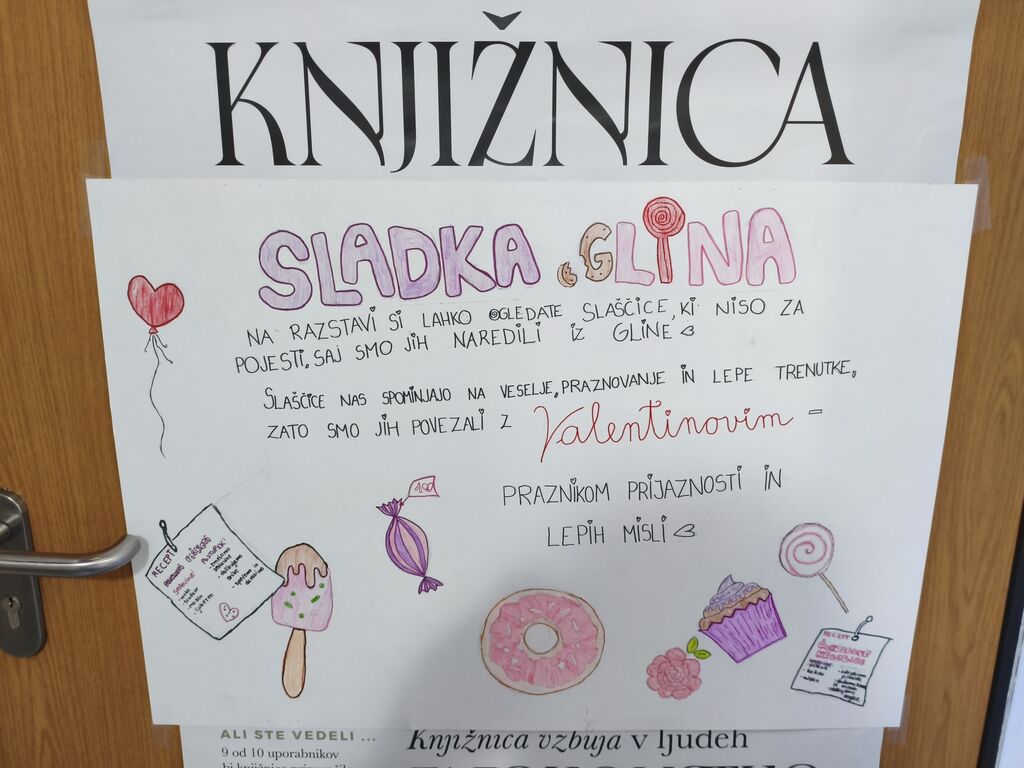 KNJIŽNICA
SLADKA GLINA
NA RAZSTAVI SI LAHKO OGLEDATE SLAŠČICE, KI NISO ZA
POJESTI, SAJ SMO JIH NAREDILI IZ GLINE
SLAŠČICE NAS SPOMINJAJO NA VESELJE, PRAZNOVANJE IN LEPE TRENUTKE,
ZATO SMO JIH POVEZALI Z Valentinovim -
PRAZNIKOM PRIJAZNOSTI IN
LEPIH MISLI
RECEPT
RECEPT
ALI STE VEDELI ...
9 od 10 uporabnikov
Knjižnica vzbuja v ljudeh